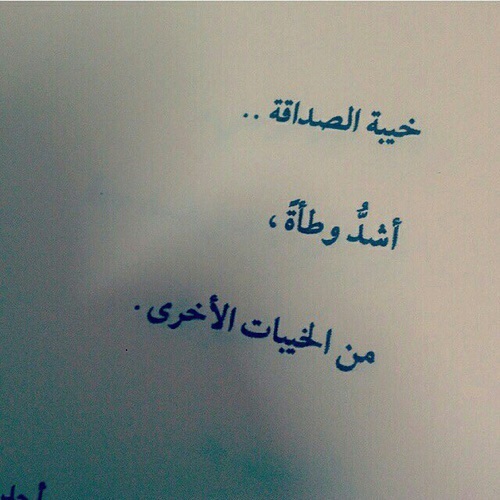 خيبة الصداقة ..
أشدُّ وطأةً ،
من الخيبات الأخرى .